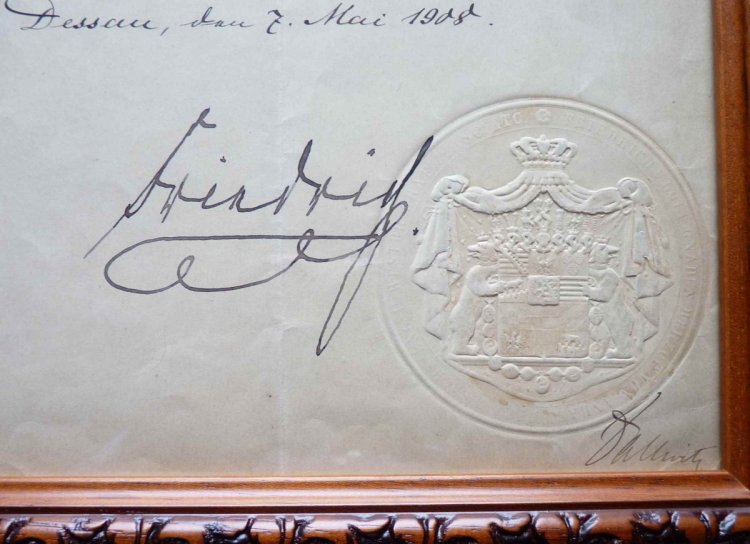 Dessau, den 7. Mai 1908.
Friedrich
Dallwitz